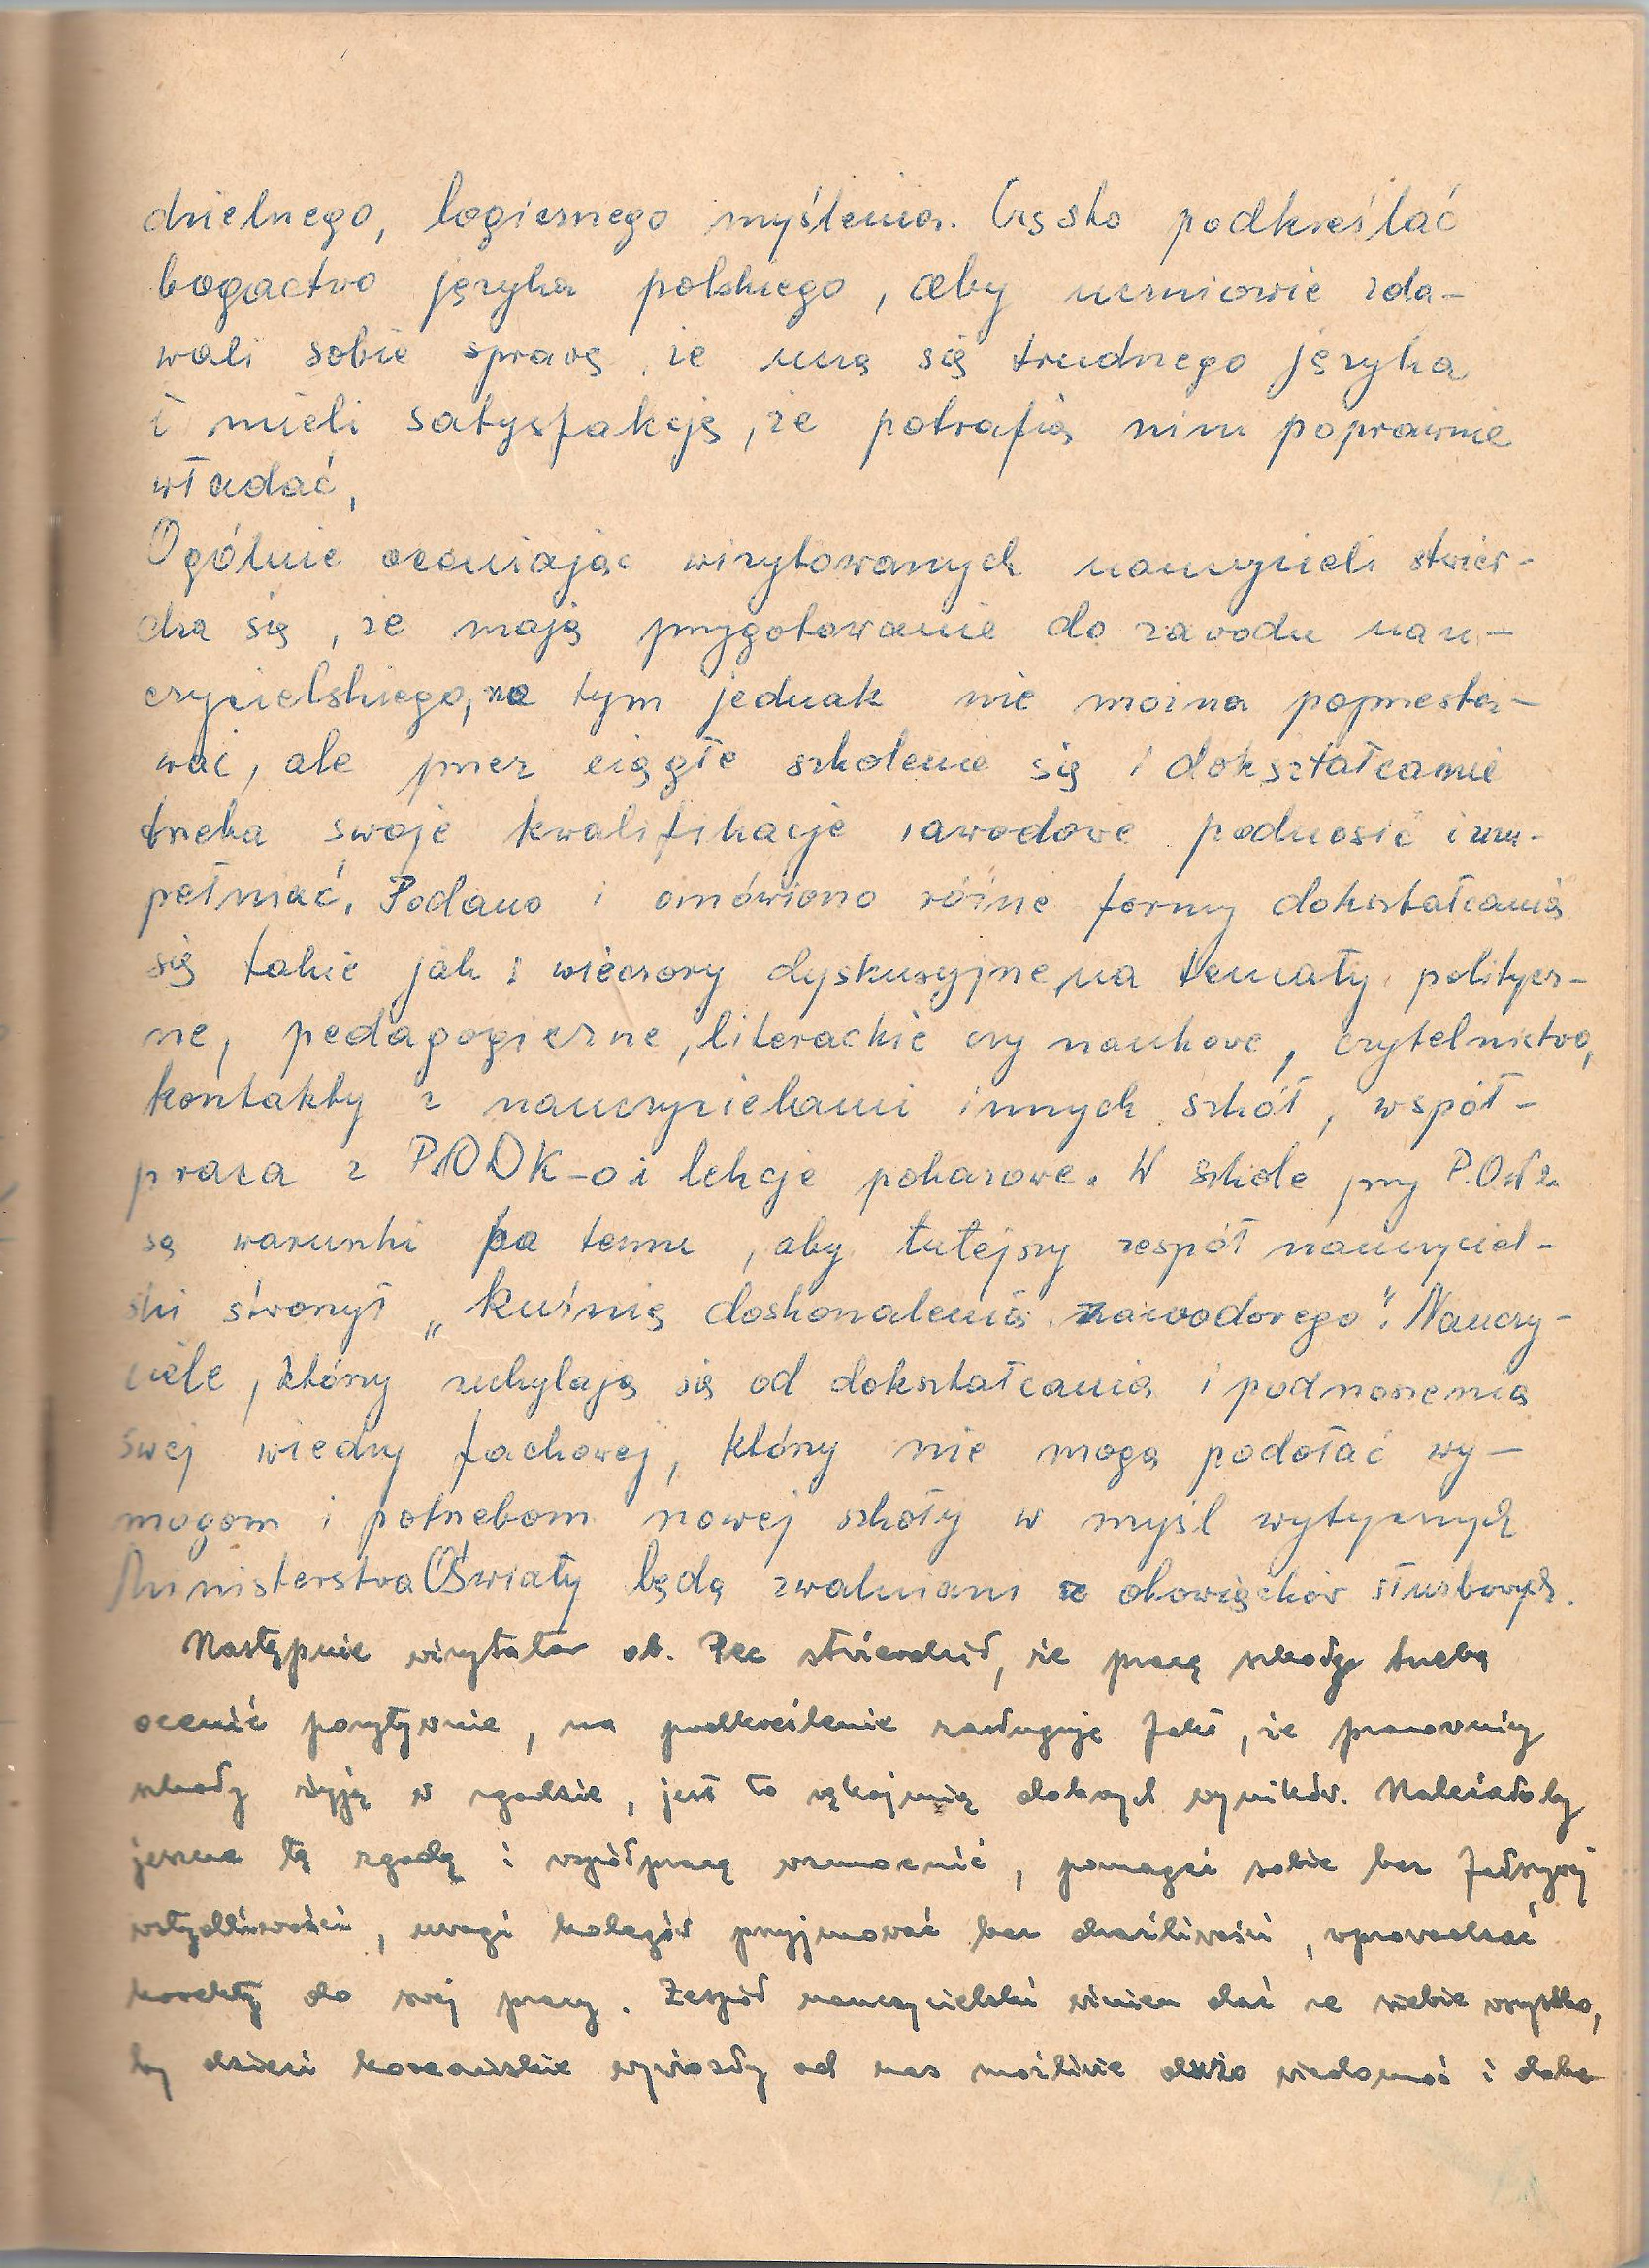 dzielnego, logicznego myślenia. Często podkreślać
bogactwo języka polskiego, aby uczniowie zda-
wali sobie sprawę, że uczą się trudnego języka
i mieli satysfakcję, że potrafią nim poprawnie
władać,
Ogólnie oceniając wizytowanych nauczycieli stwier-
dza się, że mają przygotowanie do zawodu nau-
czycielskiego, na tym jednak nie można poprzesta-
wać, ale przez ciągłe szkolenie się i dokształcanie
trzeba swoje kwalifikacje zawodowe podnosić i uzu-
pełniać. Podano i omówiono różne formy dokształcania
się takie jak: wieczory dyskusyjne na tematy politycz-
ne, pedagogiczne, literackie czy naukowe, czytelnictwo,
kontakty z nauczycielami innych szkół, współ-
praca z PODK-o i lekcje pokazowe. W szkole przy P.O.W2.
są warunki po temu, aby tutejszy zespół nauczyciel-
ski stworzył „kuźnię doskonalenia zawodowego". Nauczy-
ciele, którzy uchylają się od dokształcania i podnoszenia
swej wiedzy fachowej, którzy nie mogą podołać wy-
mogom i potrzebom nowej szkoły w myśl wytycznych
Ministerstwa Oświaty będą zwalniani z obowiązków służbowych.
Następnie wizytator ob. Pec stwierdził, że pracę szkoły trzeba
ocenić pozytywnie, na podkreślenie zasługuje fakt, że pracownicy
szkoły żyją w zgodzie, jest to rękojmią dobrych wyników. Należałoby
jeszcze tę zgodę i współpracę wzmocnić, pomagać sobie bez fałszywej
wstydliwości, uwagi kolegów przyjmować bez draźliwości, wprowadzać
korekty do swej pracy. Zespół nauczycielski winien dać ze siebie wszystko,
by dzieci koreańskie wywiozły od nas możliwie dużo wiadomości i dobre